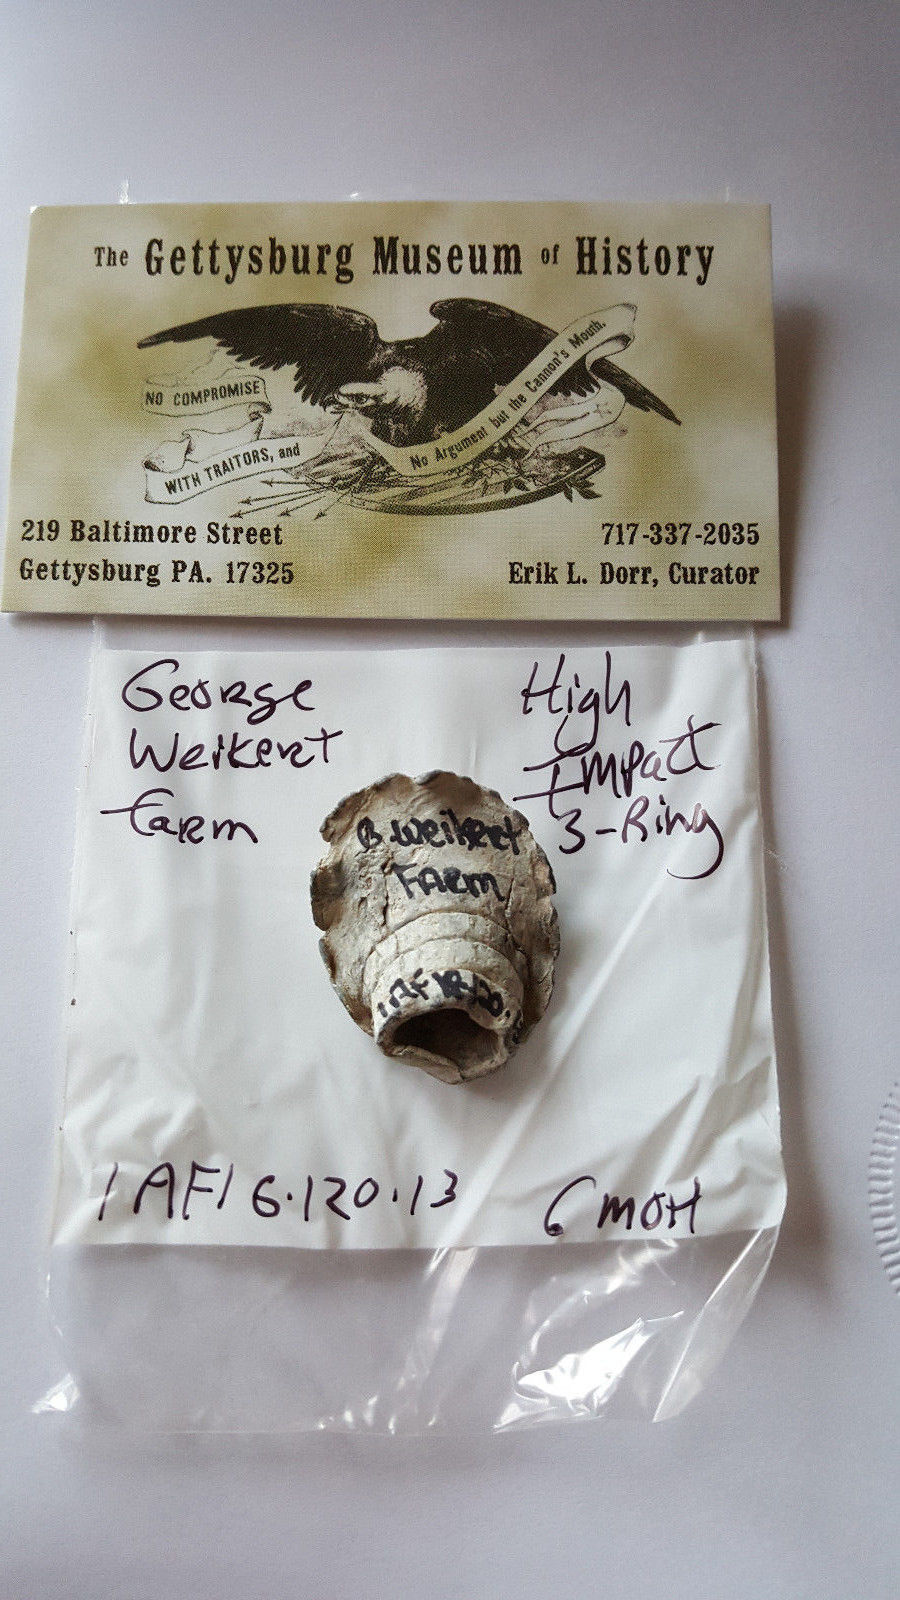 The Gettysburg Museum of History
NO COMPROMISE
WITH TRAITORS, and
No Argument but the Cannon's Mouth.
219 Baltimore Street
Gettysburg PA. 17325
717-337-2035
Erik L. Dorr, Curator
George
Weikert
Farm
High
Impact
3-Ring
G Weikert
Farm
1AF16.120.13
GMOH